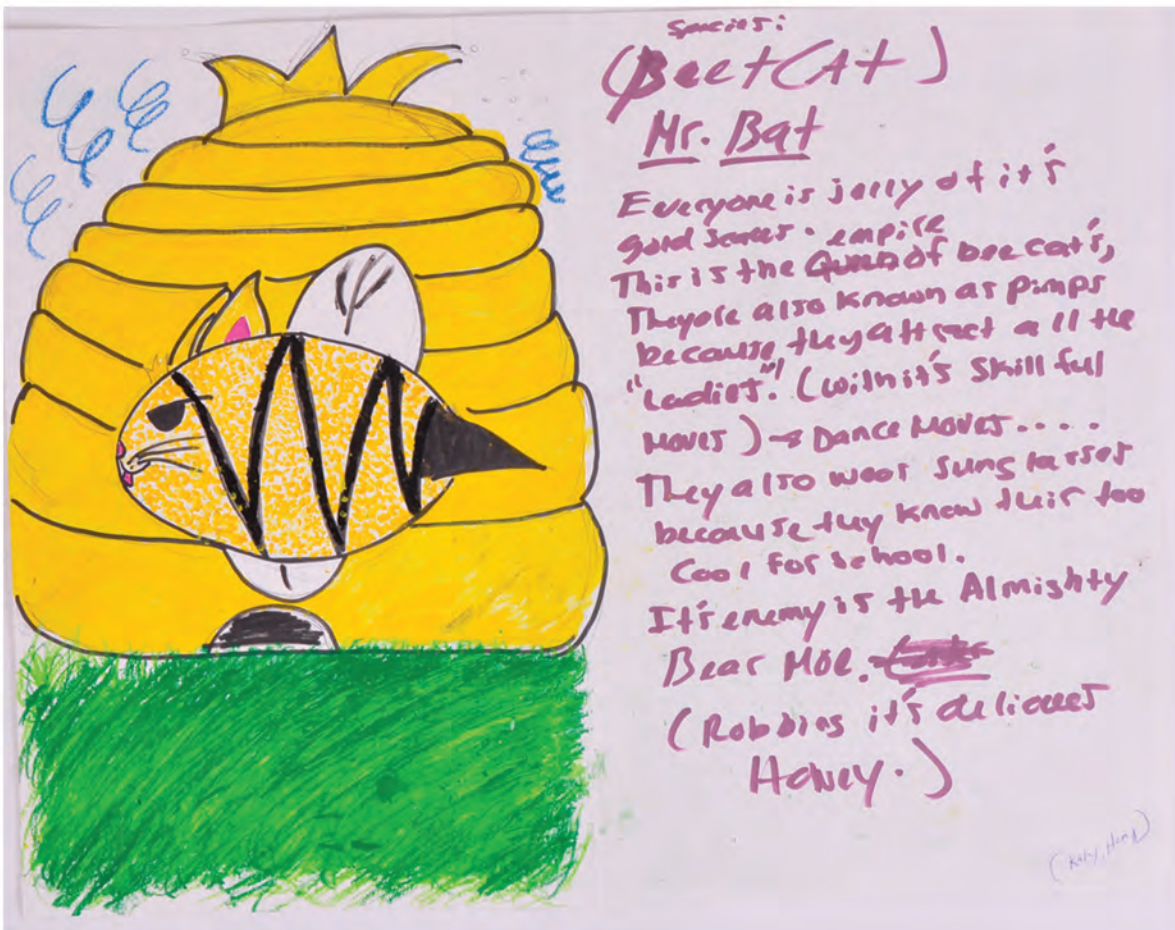 Species:
(Bee+CAt)
Mr. Bat
Everyone is jelly of it's
good scares. empire
This is the of bee cat's,
They're also known as pimps
because, they attract all the
"Ladies". (with it's skillful
Moves) → Dance Moves....
They also wear sunglasses
because they know their too
Cool for school.
It's enemy is the Almighty
Bear Moe.
(Robbing it's
Honey.)